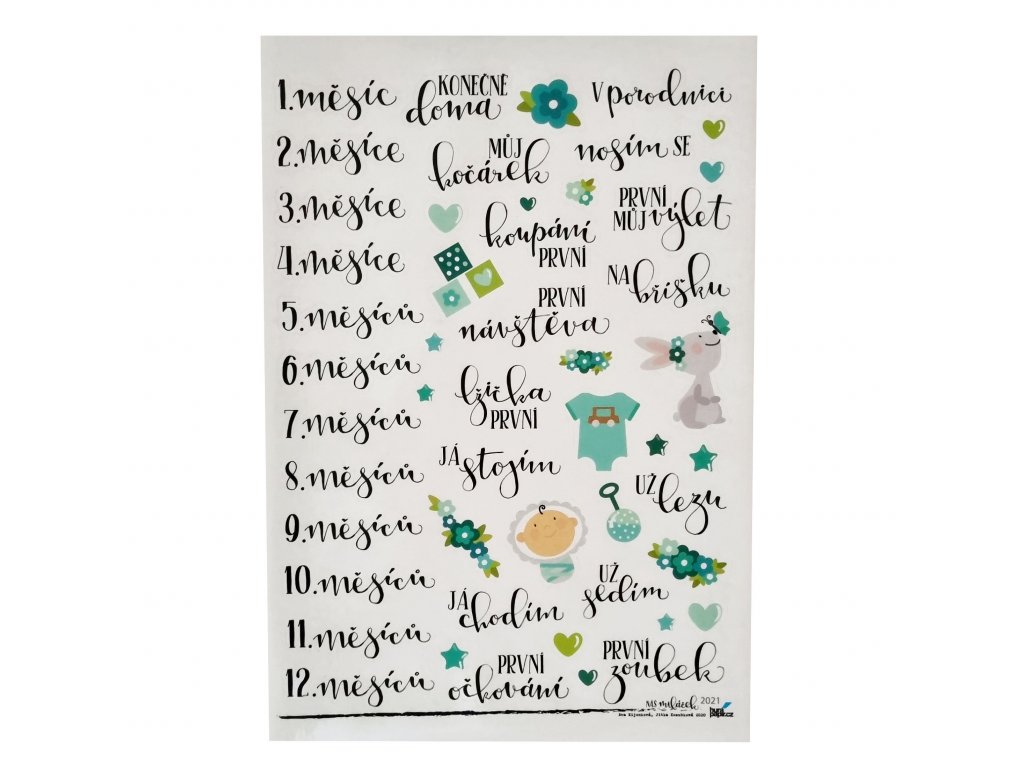 1. měsíc
2. měsíce
3. měsíce
4. měsíce
5. měsíců
6. měsíců
7. měsíců
8. měsíců
9. měsíců
10. měsíců
11. měsíců
12. měsíců
KONEČNĚ
doma
MŮJ
kočárek
koupání
PRVNÍ
PRVNÍ
návštěva
lžička
PRVNÍ
JÁ stojím
JÁ chodím
PRVNÍ
očkování
V porodnici
nosím SE
PRVNÍ
MŮJ výlet
NA bříšku
UŽ lezu
UŽ
sedím
PRVNÍ
zoubek
MS miláček 2021